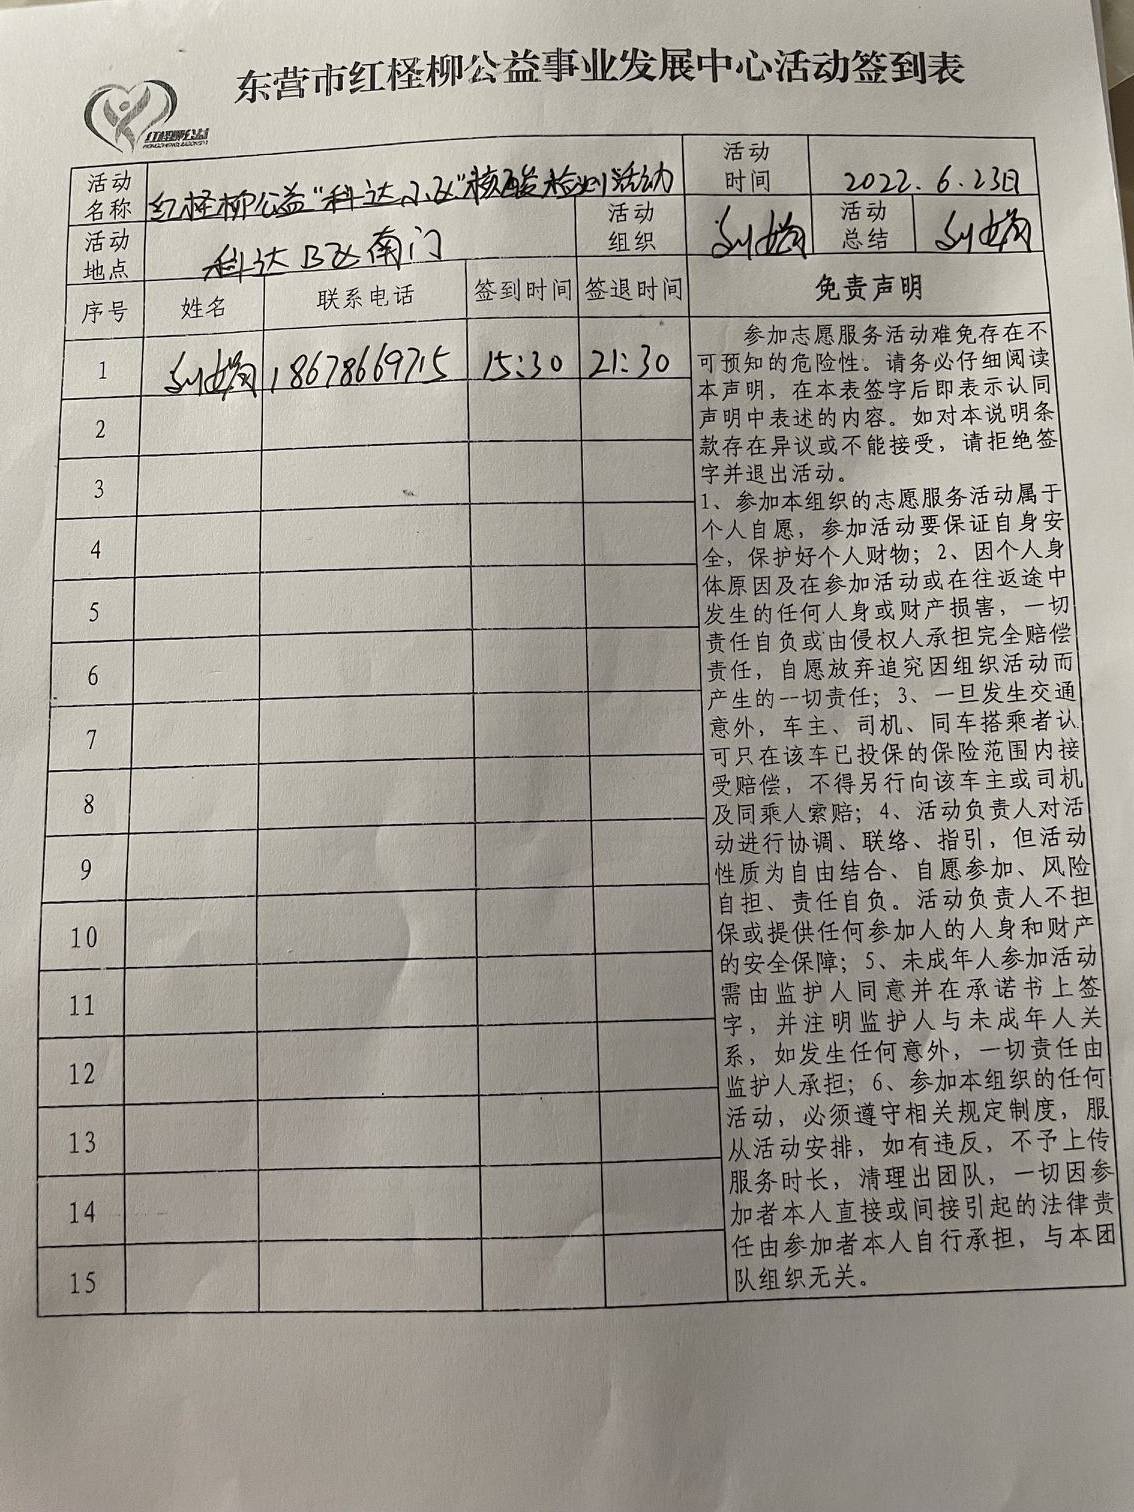 东营市红柽柳公益事业发展中心活动签到表
红柽柳公益
活动名称
红柽柳公益"科达小区"核酸检测活动
活动时间
2022.6.23日
活动地点
科达B区南门
活动组织
刘娟
活动总结
刘娟
序号 姓名 联系电话 签到时间 签退时间 免责声明
1 刘娟 18678669715 15:30 21:30
2
3
4
5
6
7
8
9
10
11
12
13
14
15
参加志愿服务活动难免存在不
可预知的危险性。请务必仔细阅读
本声明，在本表签字后即表示认同
声明中表述的内容。如对本说明条
款存在异议或不能接受，请拒绝签
字并退出活动。
1、参加本组织的志愿服务活动属于
个人自愿，参加活动要保证自身安
全，保护好个人财物；2、因个人身
体原因及在参加活动或在往返途中
发生的任何人身或财产损害，一切
责任自负或由侵权人承担完全赔偿
责任，自愿放弃追究因组织活动而
产生的一切责任；3、一旦发生交通
意外，车主、司机、同车搭乘者认
可只在该车已投保的保险范围内接
受赔偿，不得另行向该车主或司机
及同乘人索赔；4、活动负责人对活
动进行协调、联络、指引，但活动
性质为自由结合、自愿参加、风险
自担、责任自负。活动负责人不担
保或提供任何参加人的人身和财产
的安全保障；5、未成年人参加活动
需由监护人同意并在承诺书上签
字，并注明监护人与未成年人关
系，如发生任何意外，一切责任由
监护人承担；6、参加本组织的任何
活动，必须遵守相关规定制度，服
从活动安排，如有违反，不予上传
服务时长，清理出团队，一切因参
加者本人直接或间接引起的法律责
任由参加者本人自行承担，与本团
队组织无关。